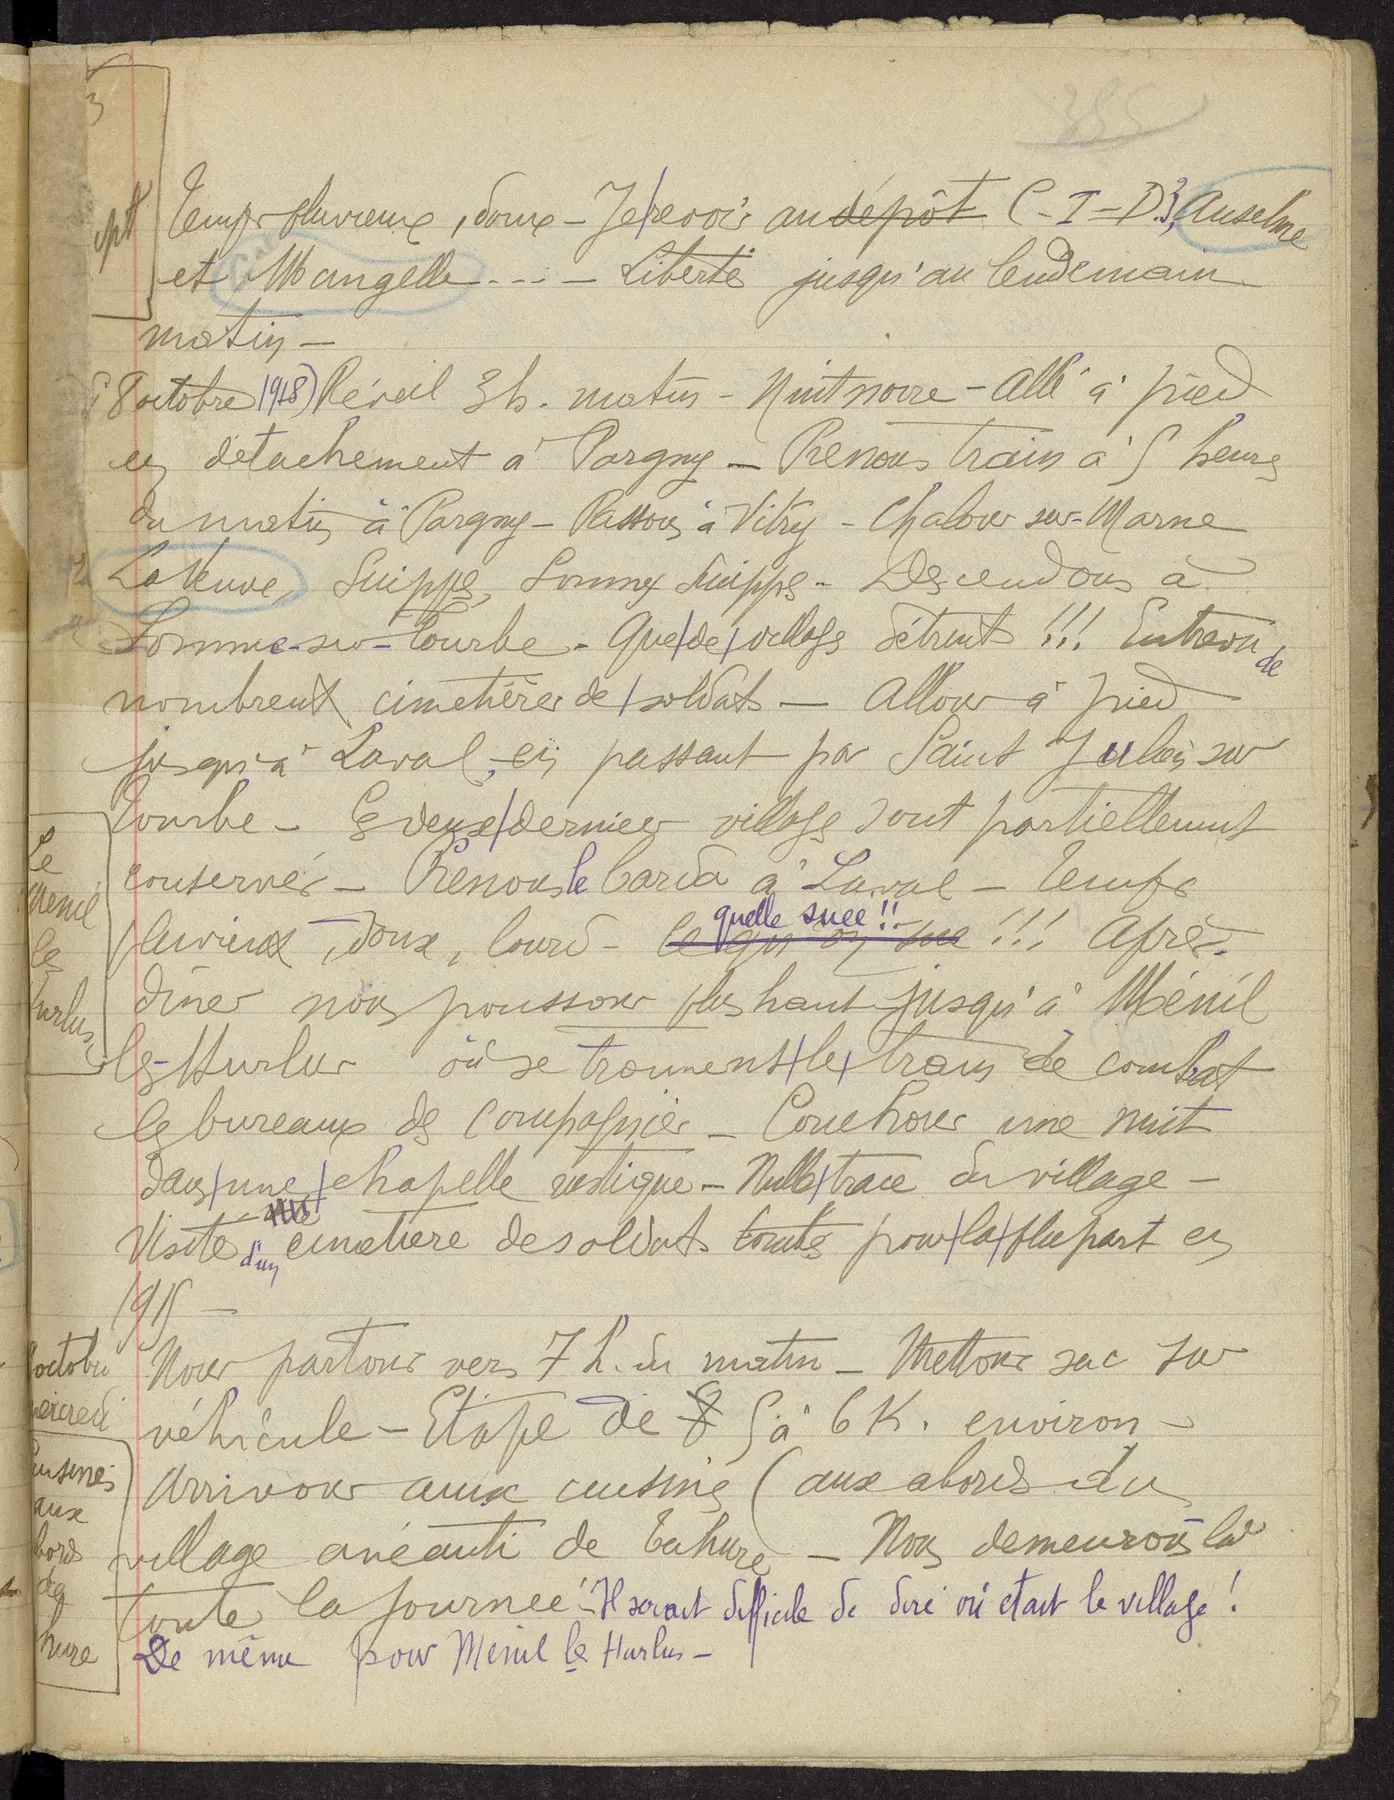 355
3
pt
Temps pluvieux, doux – Je revois au dépôt C-I-D 3, Anselme
et Mangelle ... – Liberté jusqu'au lendemain
matin –
8 octobre 1918) Réveil 3h. matin – Nuit noire – Allé à pied
en détachement à Pargny – Prenons train à 5 heures
du matin à Pargny – Passons à Vitry – Chalons sur-Marne
La Veuve, Suippes, Somme Suippe – Descendons à
Somme-sur-Tourbe – Que de villages détruits !!! Entrevu de
nombreux cimetières de soldats – Allons à pied
jusqu'à Laval, en passant par Saint Julien sur
Tourbe – Ces deux derniers villages sont partiellement
conservés – Prenons le barda à Laval – Temps
pluvieux, doux, lourd – ce qu'on sue quelle suée !! !!! Après
dîner nous poussons plus haut jusqu'à Ménil
les-Hurlus où se trouvent le train de combat
les bureaux des compagnies – Couchons une nuit
dans une chapelle rustique – Nulle trace du village –
Visite d'un cimetière de soldats tombés pour la plupart en
1915 –
Nous partons vers 7 h. du matin – Mettons sac sur
véhicule – Etape de 8 5 à 6 K. environ –
Arrivons aux cuisines (aux abords du
village anéanti de Tahure – Nous demeurons là
toute la journée – Il serait difficile de dire où était le village !
De même pour Ménil les Hurlus –
Le
Menil
les
Hurlus
octobre
mercredi
Cuisines
aux
bords
de
hure